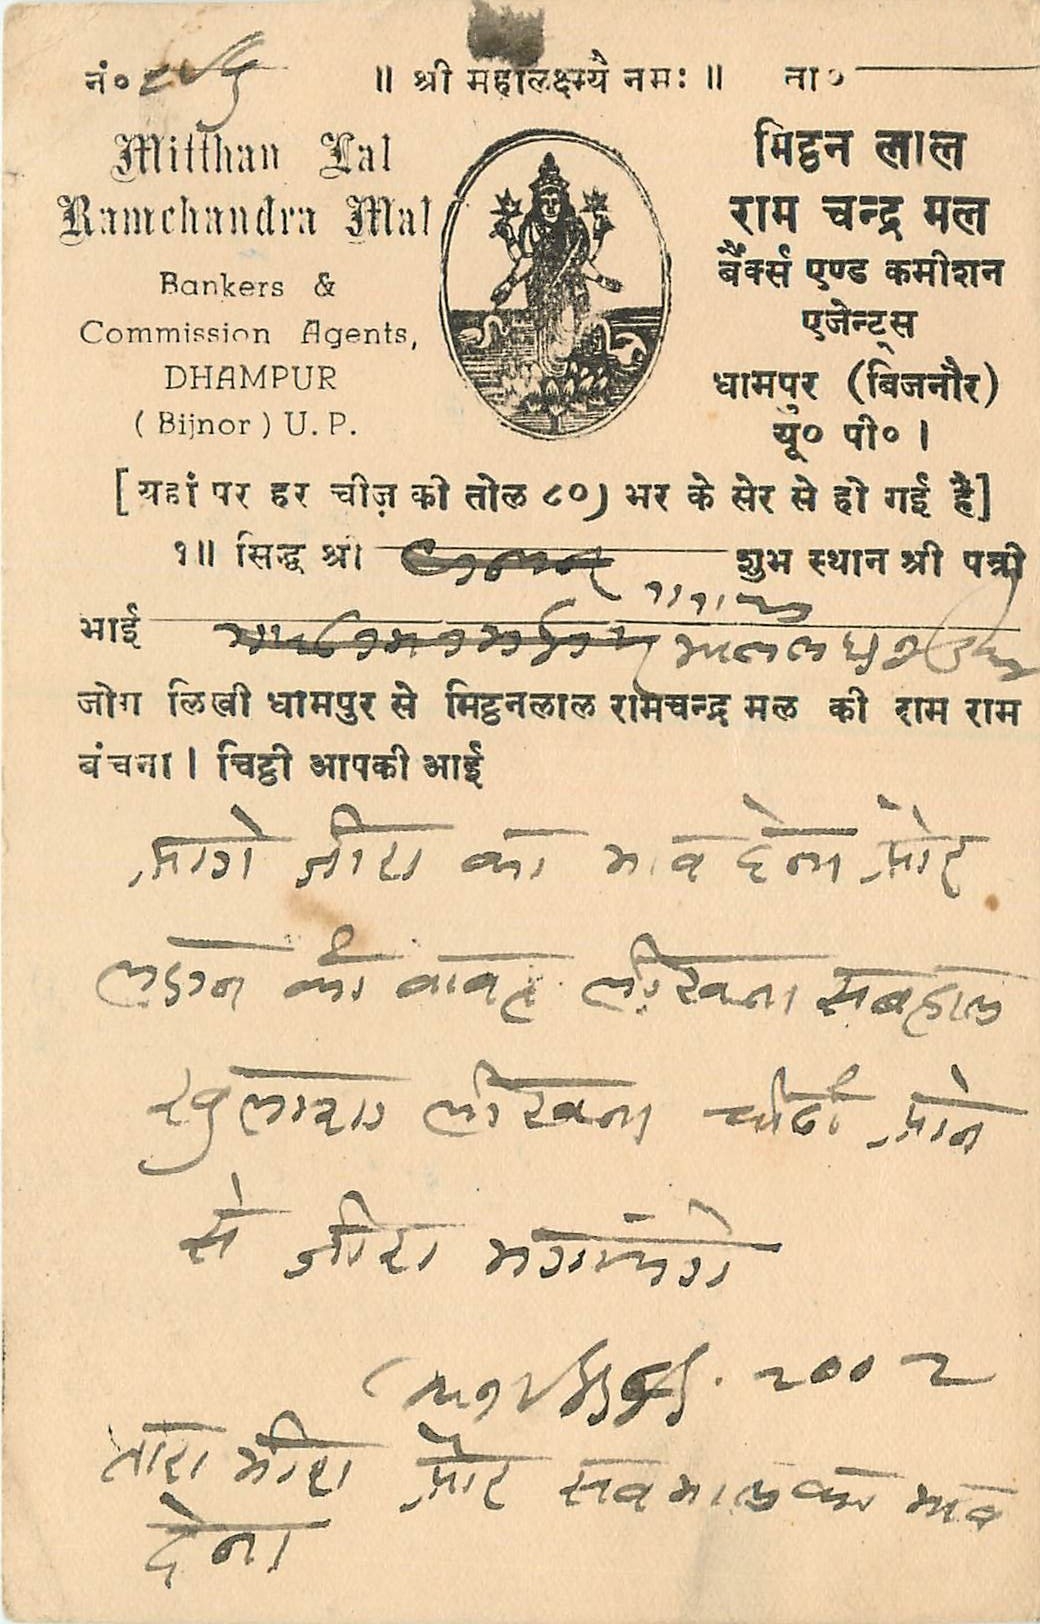 नं०
॥ श्री महालक्ष्म्यै नमः ॥
ता०
Mitthan Lal
Ramchandra Mal
Bankers &
Commission Agents,
DHAMPUR
( Bijnor ) U. P.
मिट्ठन लाल
राम चन्द्र मल
बैंकर्स एण्ड कमीशन
एजेन्ट्स
धामपुर (बिजनौर)
यू० पी० ।
[यहां पर हर चीज़ की तोल ८०) भर के सेर से हो गई है]
१॥ सिद्ध श्री शुभ स्थान श्री पत्री
भाई
जोग लिखी धामपुर से मिट्ठनलाल रामचन्द्र मल की राम राम
बंचना । चिट्ठी आपकी आई
आगे जीरा का भाव देना और
की बाबत लीखना सब हाल
खुलाशा लीखना चीठी आने
से जीरा
२००२
तारा मीरा और सब माल का भाव
देना